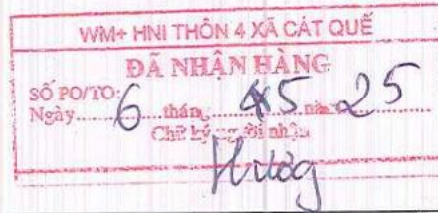 WM+ HNI THÔN 4 XÃ CÁT QUẾ
ĐÃ NHẬN HÀNG
SỐ PO/TO:
Ngày 6 tháng 5 năm 25
Chữ ký người nhận
Hương